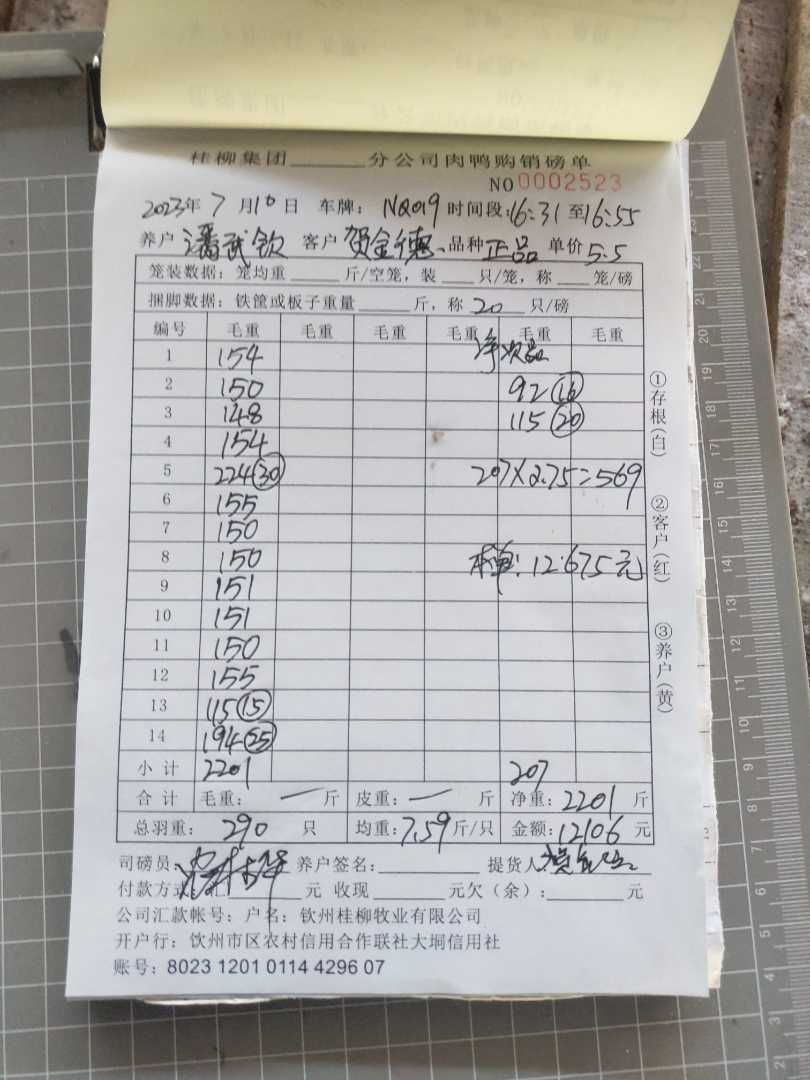 桂柳集团______分公司肉鸭购销磅单
NO 0002523
2023年 7 月 10 日 车牌: NQ019 时间段: 16:31 至 16:55
养户 潘武钦 客户 贺金德 品种 正品 单价 5.5
笼装数据: 笼均重 ____ 斤/空笼, 装 ____ 只/笼, 称 ____ 笼/磅
捆脚数据: 铁筐或板子重量 ____ 斤, 称 20 只/磅
编号 毛重 毛重 毛重 毛重 毛重 毛重
1 154 净次品
2 150 92 (16)
3 148 115 (20)
4 154
5 224 (30) 207×2.75=569
6 155
7 150
8 150 本单: 12.675元
9 151
10 151
11 150
12 155
13 115 (15)
14 194 (25)
小计 2201 207
合计 毛重: — 斤 皮重: — 斤 净重: 2201 斤
总羽重: 290 只 均重: 7.59 斤/只 金额: 12106 元
司磅员: 养户签名: ______ 提货人:
付款方式: 汇 ____ 元 收现 ____ 元欠(余): ____ 元
公司汇款帐号: 户名: 钦州桂柳牧业有限公司
开户行: 钦州市区农村信用合作联社大垌信用社
账号: 8023 1201 0114 4296 07
①存根(白)
②客户(红)
③养户(黄)